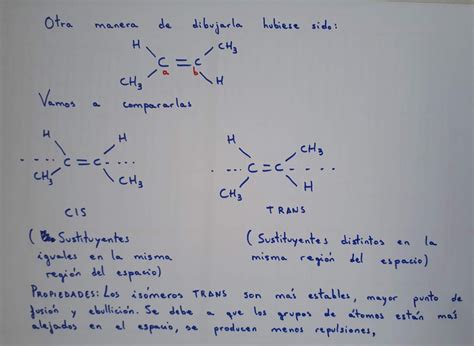 Otra manera de dibujarla hubiese sido:
H CH3
C = C
a b
CH3 H
Vamos a compararlas
H H
C = C
CH3 CH3
CIS
(Sustituyentes
iguales en la misma
región del espacio)
H CH3
C = C
CH3 H
TRANS
(Sustituyentes distintos en la
misma región del espacio)
PROPIEDADES: Los isómeros TRANS son más estables, mayor punto de
fusión y ebullición. Se debe a que los grupos de átomos están más
alejados en el espacio, se producen menos repulsiones,